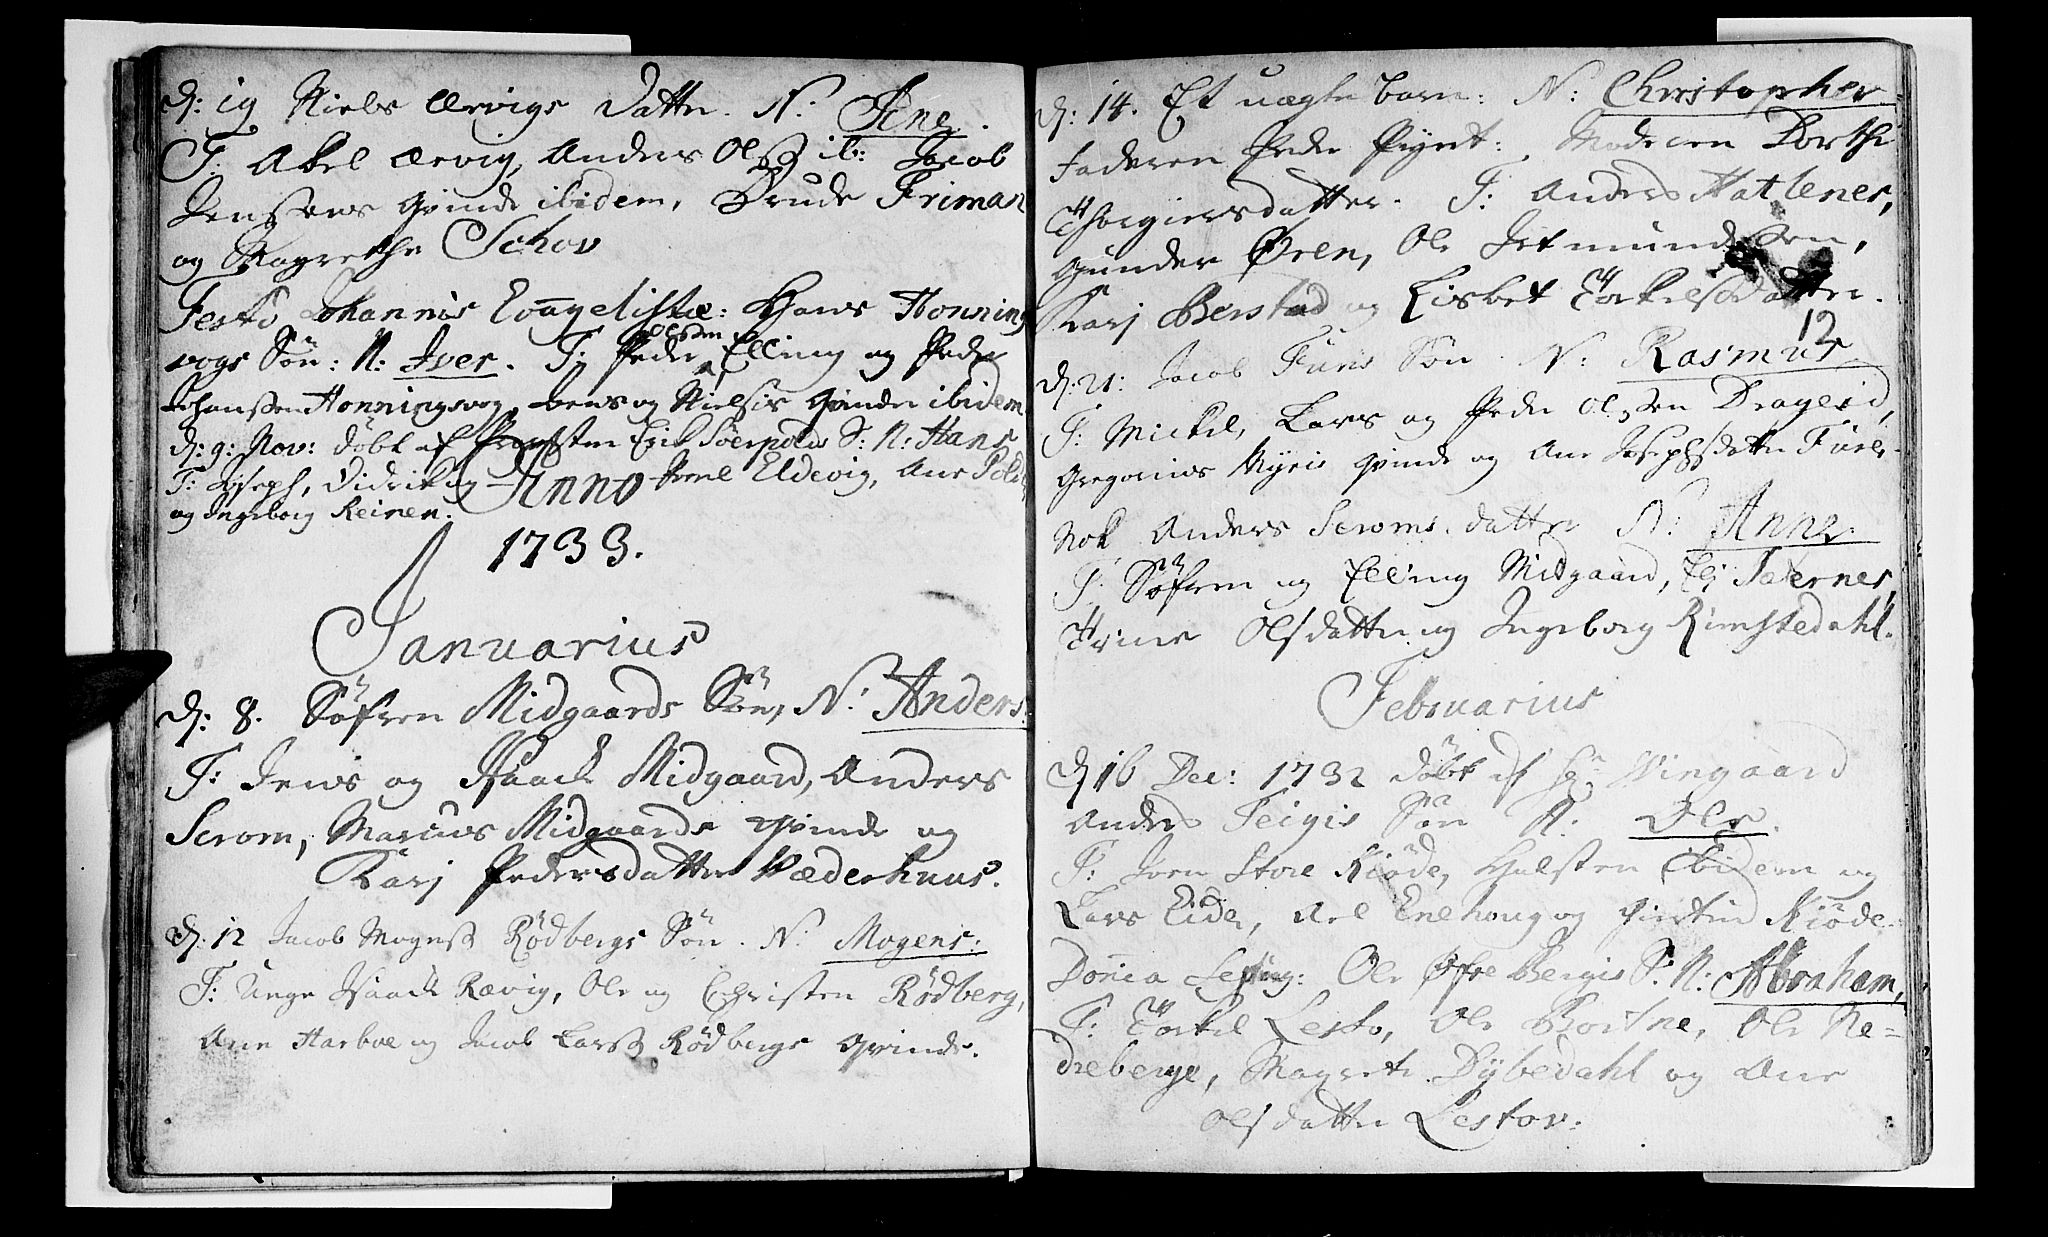 d: 19 Niels Ærvigs Datter. N: Jene.
F. Abel Ærvig, Anders Olss. ib: Jacob
Jenssens qvinde ibidem, Drude Friman
og Magrethe Schov
Festo Johannis Evangelistæ: Hans Honning
vogs Søn: N: Iver. F: Peder Olssen Elling og Peder
Hanssen Honningsvog, Jens og Nielsis qvinder ibidem
d: 9: Nov: døbt af Præsten Erik S: N: Hans
F: Joseph, Didrik og Eldevig, Ane
og Ingeborg Reinen.
Anno
1733.
Januarius
d: 8. Søfren Midgaards Søn, N: Anders.
F: Jens og Isaack Midgaard, Anders
Scrom, Marcus Midgaards qvinde og
Karj Pedersdatter Væderhuus.
d: 12 Jacob Mogenss Rødbergs Søn. N: Mogens:
F: Unge Isaach Rævig, Ole og Christen Rødberg,
Ane Harboe og Jacob Larss Rødbergs qvinde.
d: 14. Et uægte barn: N: Christopher
Faderen Peder Pynt: Moderen Dorthe
Thorgiersdatter. F: Anders Hatlenes,
Gunder Øren, Ole Jetmundssen,
Karj Berstad og Lisbet Torkelsdatter.
12
d: 21: Jacob Furis Søn N: Rasmus
F: Mickel, Lars og Peder Olssen Drageid,
Gregorius Myris qvinde og Ane Josephsdatter Fure.
Nok Anders Scroms datter N: Anne.
F: Søfren og Elling Midgaard, Elj Taternes,
Trine Olsdatter og Ingeborg Rimstedahl.
Februarius
d 16 Dec: 1732 døbt af Hr: Wingaard
Anders Teigis Søn N: Ole.
F: Joen Store Kiøde, Halsten Ibidem og
Lars Eide, Ael Enehoug og Kiøde.
Donica Sexag: Ole Øfre Bergis S. N: Abraham,
F: Torkel Lesto, Ole Bortne, Ole Ne=
dreberge, Magrete Dybedahl og Ane
Olsdatter Lestov.